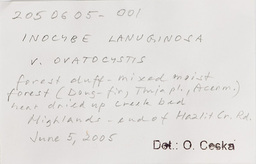 205 06 05 - 001
INOCYBE LANUGINOSA
v. OVATOCYSTIS
forest duff - mixed moist
forest (Doug-fir, Thuja pli., Acerm.)
near dried up creek bed
Highlands - end of Hazlit Cr. Rd.
June 5, 2005
Det.: O. Ceska